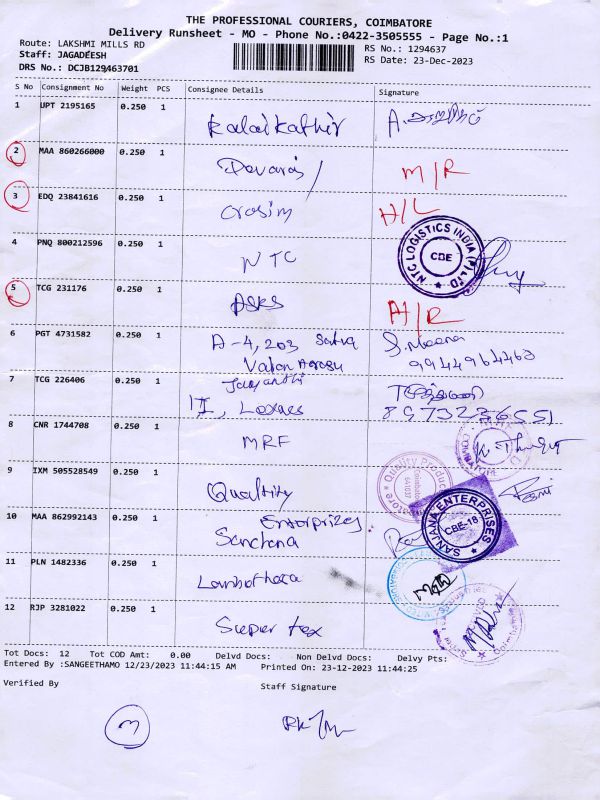 THE PROFESSIONAL COURIERS, COIMBATORE
Delivery Runsheet - MO - Phone No.:0422-3505555 - Page No.:1
Route: LAKSHMI MILLS RD
RS No.: 1294637
Staff: JAGADEESH
RS Date: 23-Dec-2023
DRS No.: DCJB129463701
S No Consignment No Weight PCS Consignee Details Signature
1 UPT 2195165 0.250 1
Kalaikathir A.
2 MAA 860266000 0.250 1
Devaras M/R
3 EDQ 23841616 0.250 1
Crosim A/L
NTC LOGISTICS INDIA (P) LTD
CBE
4 PNQ 800212596 0.250 1
NTC
5 TCG 231176 0.250 1
A/R
6 PGT 4731582 0.250 1
A-4, 203 S. Meena
9944964463
7 TCG 226406 0.250 1
Jayanthi
8973236551
8 CNR 1744708 0.250 1
MRF
9 IXM 505528549 0.250 1
Quality Produc
Coimbatore
641037
Qualtity
Enterprizes
10 MAA 862992143 0.250 1
Sanchana
SANJANA ENTERPRISES
CBE-18
11 PLN 1482336 0.250 1
12 RJP 3281022 0.250 1
Super tex
Tot Docs: 12 Tot COD Amt: 0.00 Delvd Docs: Non Delvd Docs: Delvy Pts:
Entered By :SANGEETHAMO 12/23/2023 11:44:15 AM Printed On: 23-12-2023 11:44:25
Verified By
Staff Signature